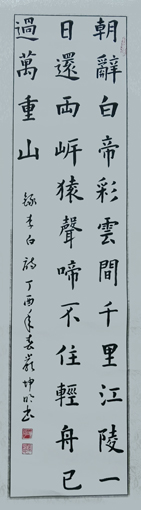 朝辭白帝彩雲間千里江陵一
日還兩岸猿聲啼不住輕舟已
過萬重山
錄李白詩丁酉年春嚴坤